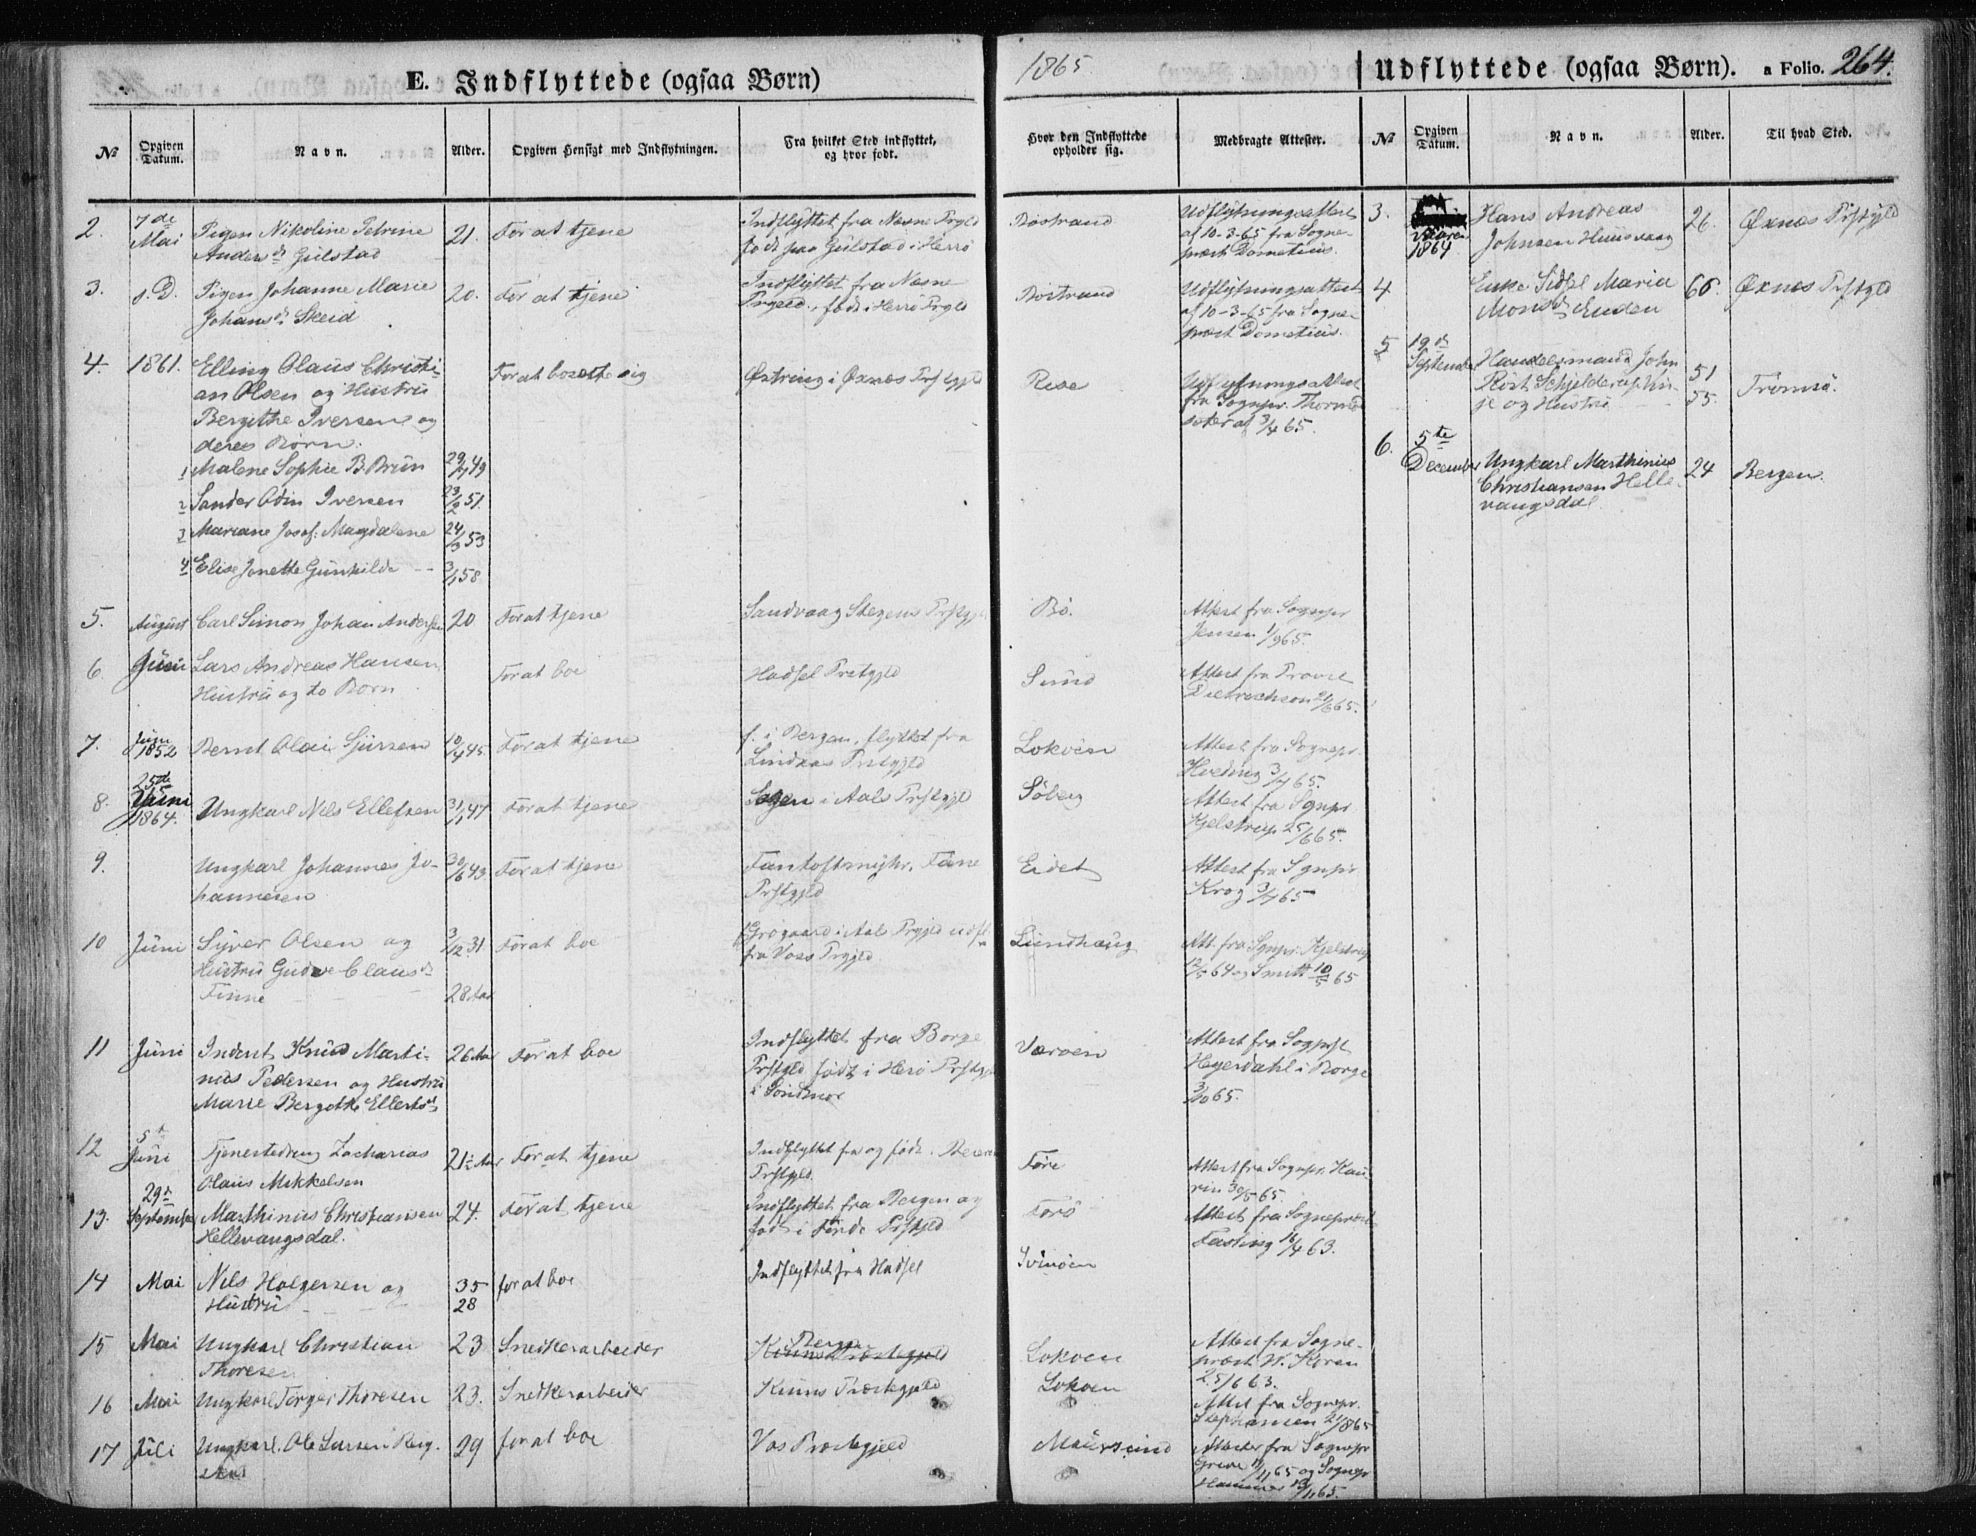 E. Indflyttede (ogsaa Børn)
1865
Udflyttede (ogsaa Børn).
a Folio. 264.
№
Opgiven Datum.
Navn.
Alder.
Opgiven Hensigt med Indflytningen.
Fra hvilket Sted indflyttet, og hvor født.
Hvor den Indflyttede opholder sig.
Medbragte Attester.
2. 7de Mai
Pigen Nikoline Petrine
Andersdr Gulstad
21. For at tjene
Indflyttet fra Næsne Prgld
født paa Gulstad i Herrø
Barstrand
Udflytningsattest
af 10-3-65 fra Sogne-
præst Dometius.
3. s. D.
Pigen Johanne Marie
Johansdr Skeid
20. For at tjene
Indflyttet fra Næsne
Prgeld., født i Herrø Prgld
Barstrand
Udflytningsattest
af 10-3-65 fra Sogne-
præst Dometius.
4. 1861.
Elling Olaus Christi-
an Olsen og Hustru
Bergithe Iversen og
deres Børn.
For at bosætte sig
i Øxnes Prstgjeld
Reise
Udflytningsattest
fra Sognpr.
af 3/4 65.
1 Malene Sophie B. Brun 29/7 49
2 Sander Odin Iversen 23/2 51
3 Mariane Josef: Magdalene 24/3 53
4 Elise Jonette Gunhilde 3/1 58
5. August
Carl Simon Johan Andersen
20
For at tjene
Sandvaag Stegens Prstgj
Bø.
Attest fra Sognpr
Jensen 1/9 65.
6 Juni
Lars Andreas Hansen,
Hustru og to Børn
For at boe
Hadsel Prstgjeld
Sund
Attest fra Provst
Dietrichson 21/6 65.
7. Juni 1852
Bernt Olai Sjursen
10/4 45
For at tjene
f. i Bergen, flyttet fra
Lindaas Prstgjeld
Lokøen
Attest fra Sognepr.
Hveding 3/7 65.
8. 25de Juni 1864.
Ungkarl Nils Ellefsen
31/1 47
For at tjene
i Aals Prstgjeld
Søberg
Attest fra Sgnpr
Kjelstrup 25/6 65.
9.
Ungkarl Johannes Jo-
hannesen
30/6 43
For at tjene
Fane
Prstgjeld
Eidet
Attest fra Sgnpr
Krog 3/7 65
10 Juni
Syver Olsen og
Hustru Gudve Clausdr
Finne
3/12 31
28 Aar
For at boe
Grøgaard i Aal Prgjeld udfl.
fra Voss Prgjeld
Lundhaug
Att. fra Sgnpr. Kjelstrup
12/5 64 og Smitt 10/5 65
11 Juni
Inderst Knud Marti-
nus Pedersen og Hustru
Marie Bergethe Ellertsdr
26 Aar
For at boe
Indflyttet fra Borge
Prstgjeld født i Herø Prstgj
i Søndmør
Værøen
Attest fra Sogprst
Hejerdahl i Borge
3/10 65.
12 5t Juni
Tjenestedreng Zacharias
Olaus Mikkelsen
21 Aar
For at tjene
Indflyttet fra og født i
Prstgjeld.
Føre
Attest fra Sognpr. Hau-
rin 30/5 65.
13. 29d September
Marthinus Christiansen
Hellevangsdal.
24.
For at tjene
Indflyttet fra Bergen og
født i Førde Prstgjeld
Forø
Attest fra Sognepræst
Fasting 16/4 63.
14 Mai
Nils Holgersen og
Hustru
35
28
for at boe
Indflyttet fra Hadsel
Svinøen
15 Mai
Ungkarl Christian
Thoresen
23
Snedkerarbeider
Bergen
Kinns Præstegjeld
Lokøen
Attest fra Sogne-
præst W. Koren
25/6 63.
16 Mai
Ungkarl Torger Thoresen
23.
Snedkerarbeider
Kinns Præstegjeld
Lokøen
Attest fra Sognepr.
Stephansen 21/8 65
17 Juli
Ungkarl. Ole Larsen Berg-
29
for at boe
Vos Præstegjeld
Maursund
Attester fra Sognepr
Greve 11/11 65 og Sognepr
Hammer 13/11 65.
№
Opgiven Datum.
Navn.
Alder.
Til hvad Sted.
3. Vaaren 1864
Hans Andreas
Johnsen Huusvaag
26.
Øxnes Prstgjeld
4
Enke Sidsel Maria
Monsdr Enden
66.
Øxnes Prstgjeld
5 19de September
Handelsmand John
Røst Schjelderuphu-
je og Hustru
51
55.
Tromsø.
6. 5te December
Ungkarl Marthinus
Christiansen Helle-
vangsdal
24
Bergen.